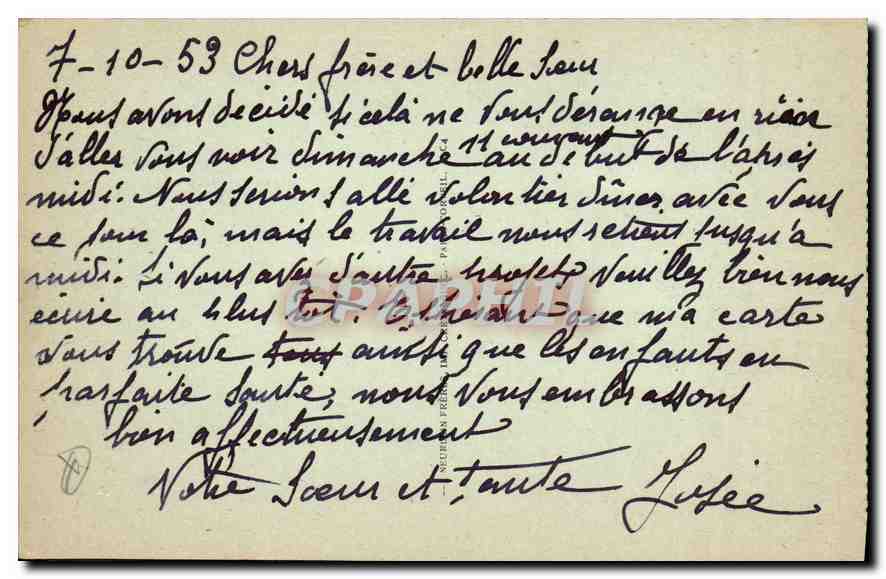 7-10-53 Chers frère et belle Sœur
Nous avons décidé si celà ne vous dérange en rien
11 courant
d'aller vous voir dimanche au début de l'après
midi. Nous serions allé volontier dîner avec vous
ce jour là, mais le travail nous retient jusqu'a
midi. Si vous avez d'autre projet veuillez bien nous
écrire au plus tot. Espérant que ma carte
vous trouve tous ainsi que les enfants en
parfaite santé, nous vous embrassons
bien affectueusement
Votre Sœur et tante Josée
CPAPHIL
NEURDEIN FRÈRES